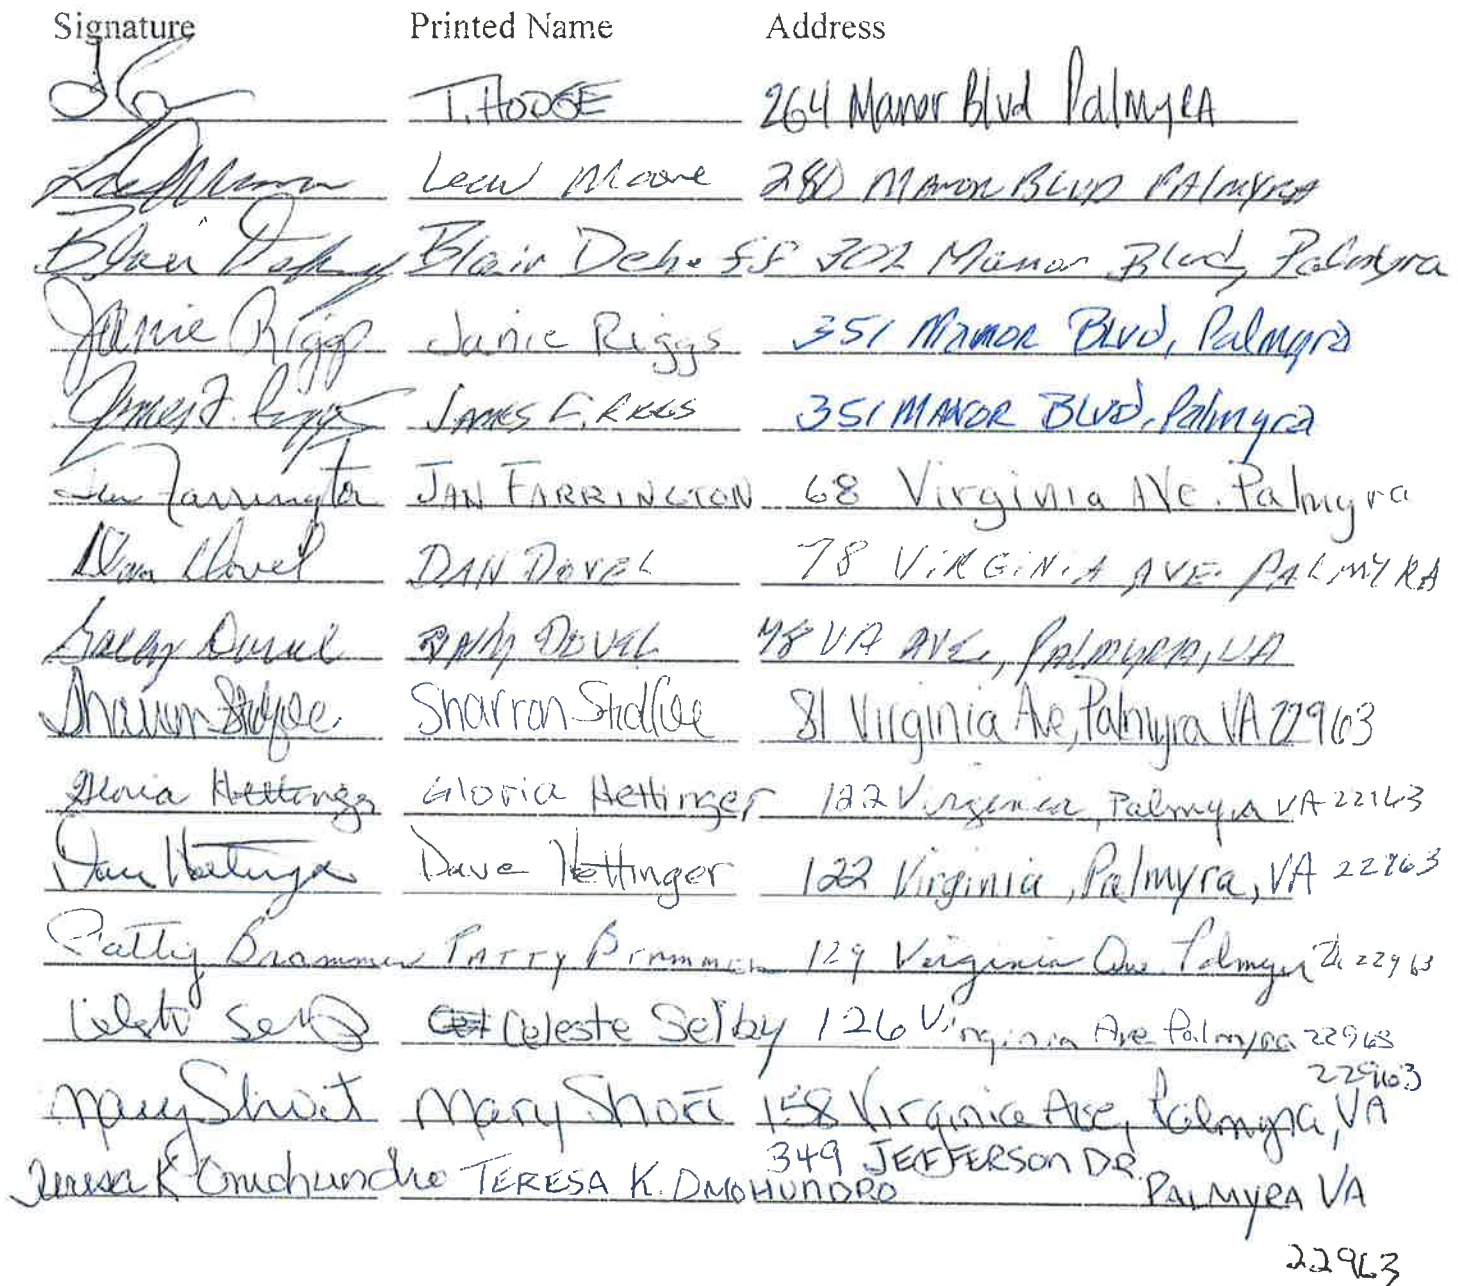 Signature Printed Name Address
T. HODGE 264 Manor Blvd Palmyra
Moore 280 Manor Blvd Palmyra
Blair Blair Dehoff 302 Manor Blvd, Palmyra
Janie Riggs Janie Riggs 351 Manor Blvd, Palmyra
James F. Riggs JAMES F. RIGGS 351 MANOR Blvd, Palmyra
Jan Farrington JAN FARRINGTON 68 Virginia Ave. Palmyra
Dan Dovel DAN DOVEL 78 VIRGINIA AVE. PALMYRA
Dovel DOVEL 78 VA AVE, PALMYRA, VA
Sharron Sharron 81 Virginia Ave, Palmyra VA 22963
Gloria Hettinger Gloria Hettinger 122 Virginia, Palmyra VA 22963
Dave Hettinger Dave Hettinger 122 Virginia, Palmyra, VA 22963
Patty Brammer PATTY Brammer 129 Virginia Ave Palmyra Va 22963
Celeste Selby Celeste Selby 126 Virginia Ave Palmyra 22963
22963
Mary Short Mary Short 158 Virginia Ave, Palmyra, VA
349 JEFFERSON DR.
Teresa K Omohundro TERESA K. OMOHUNDRO PALMYRA VA
22963